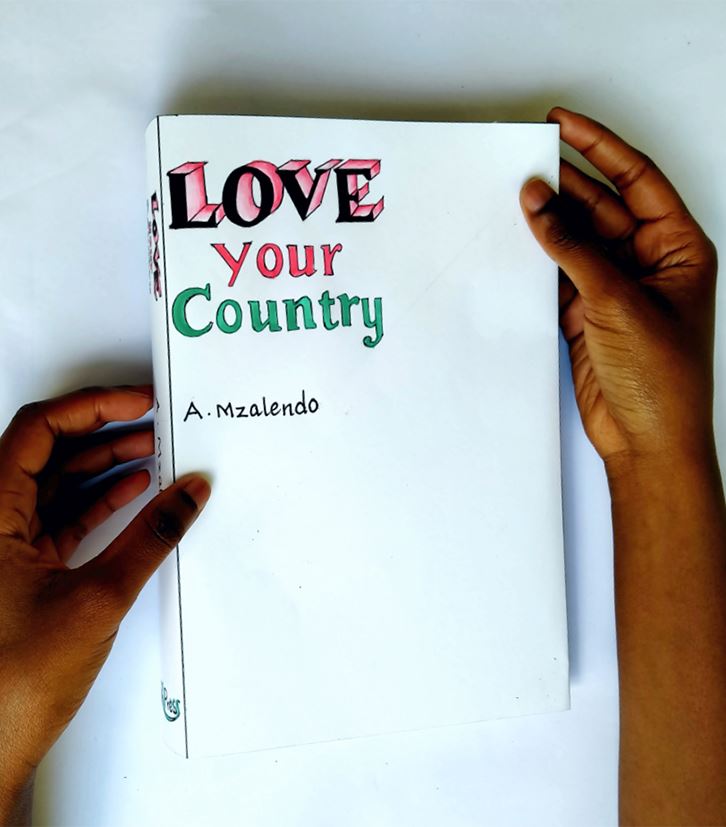 LOVE
your
Country
A. Mzalendo
LOVE
Press